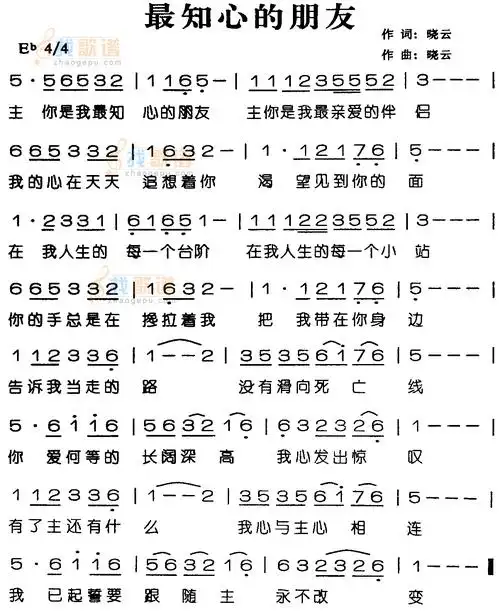 最知心的朋友
作 词: 晓云
E♭ 4/4
作 曲: 晓云
找歌谱
zhaogepu.com
5 · 5 6 5 3 2 | 1 1 6 5 - | 1 1 1 2 3 5 5 5 2 | 3 - - - |
主 你是我最知 心的朋友 主你是我最亲爱的伴 侣
6 6 5 3 3 2 | 1 6 3 2 - | 1 · 1 2 1 7 6 | 5 - - - |
我的心在天天 追想着你 渴 望见到你的 面
1 · 2 3 3 1 | 6 1 6 5 1 - | 1 1 1 2 2 3 5 5 2 | 3 - - - |
在 我人生的 每一个台阶 在我人生的每一个小 站
6 6 5 3 3 2 | 1 · 6 3 2 - | 1 · 1 2 1 7 6 | 5 - - - |
你的手总是在 搀拉着我 把 我带在你身 边
1 1 2 3 3 6 | 1 - - 2 | 3 5 3 5 6 i 7 6 | 5 - - - |
告诉我当走的 路 没有滑向死 亡 线
5 · 6 i i 6 | 5 6 3 2 1 6 | 6 3 2 3 2 6 | 1 - - - |
你 爱何等的 长阔深 高 我心发出惊 叹
1 1 2 3 3 6 | 1 - - 2 | 3 5 3 5 6 i 7 6 | 5 - - - |
有了主还有什 么 我心与主心 相 连
5 · 6 i i 6 | 5 6 3 2 1 6 | 6 3 2 3 2 6 | 1 - - - ‖
我 已起誓要 跟 随 主 永不改 变